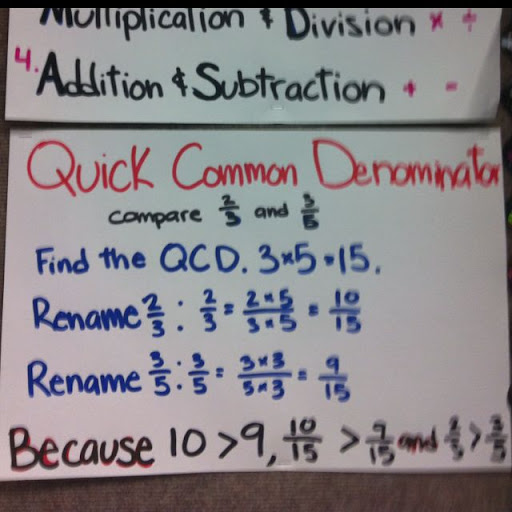 Multiplication & Division × ÷
4. Addition & Subtraction + -
Quick Common Denominator
compare 2/3 and 3/5
Find the QCD. 3×5=15.
Rename 2/3 : 2/3 = 2×5/3×5 = 10/15
Rename 3/5 : 3/5 = 3×3/5×3 = 9/15
Because 10 > 9, 10/15 > 9/15 and 2/3 > 3/5